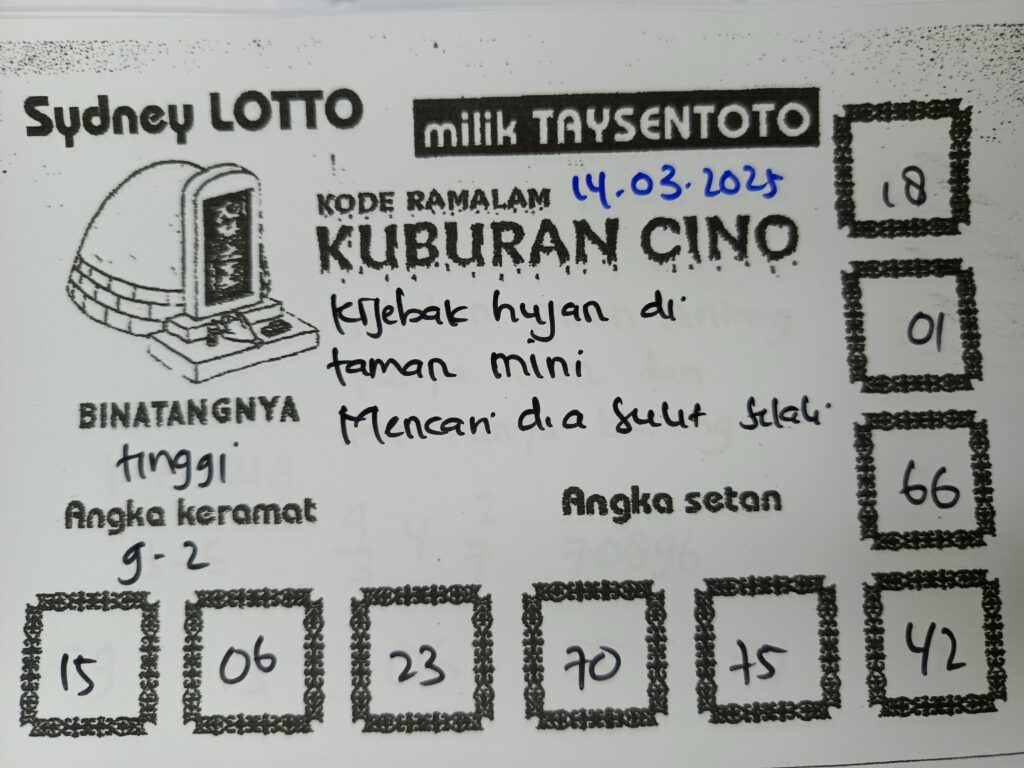 Sydney LOTTO
milik TAYSENTOTO
KODE RAMALAM 14.03.2025
KUBURAN CINO
kijebak hujan di
taman mini
Mencari dia sulit
BINATANGNYA
tinggi
Angka keramat
9-2
Angka setan
18
01
66
15 06 23 70 75 42